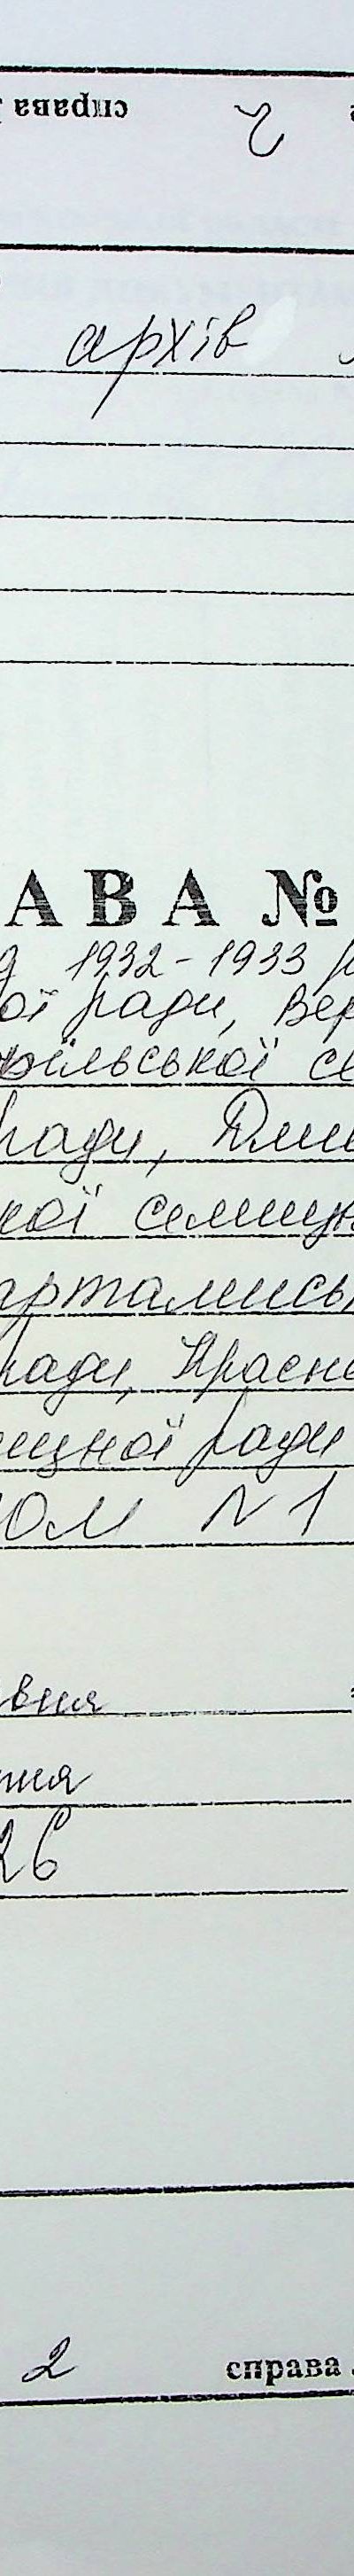 справа
2
архів
АВА №
1932-1933
ої ради, Вер
ільської се
ради, Дми
кої селищн
артамиськ
ради, Красно
ищної ради
ом N 1
вня
ня
26
2 справа